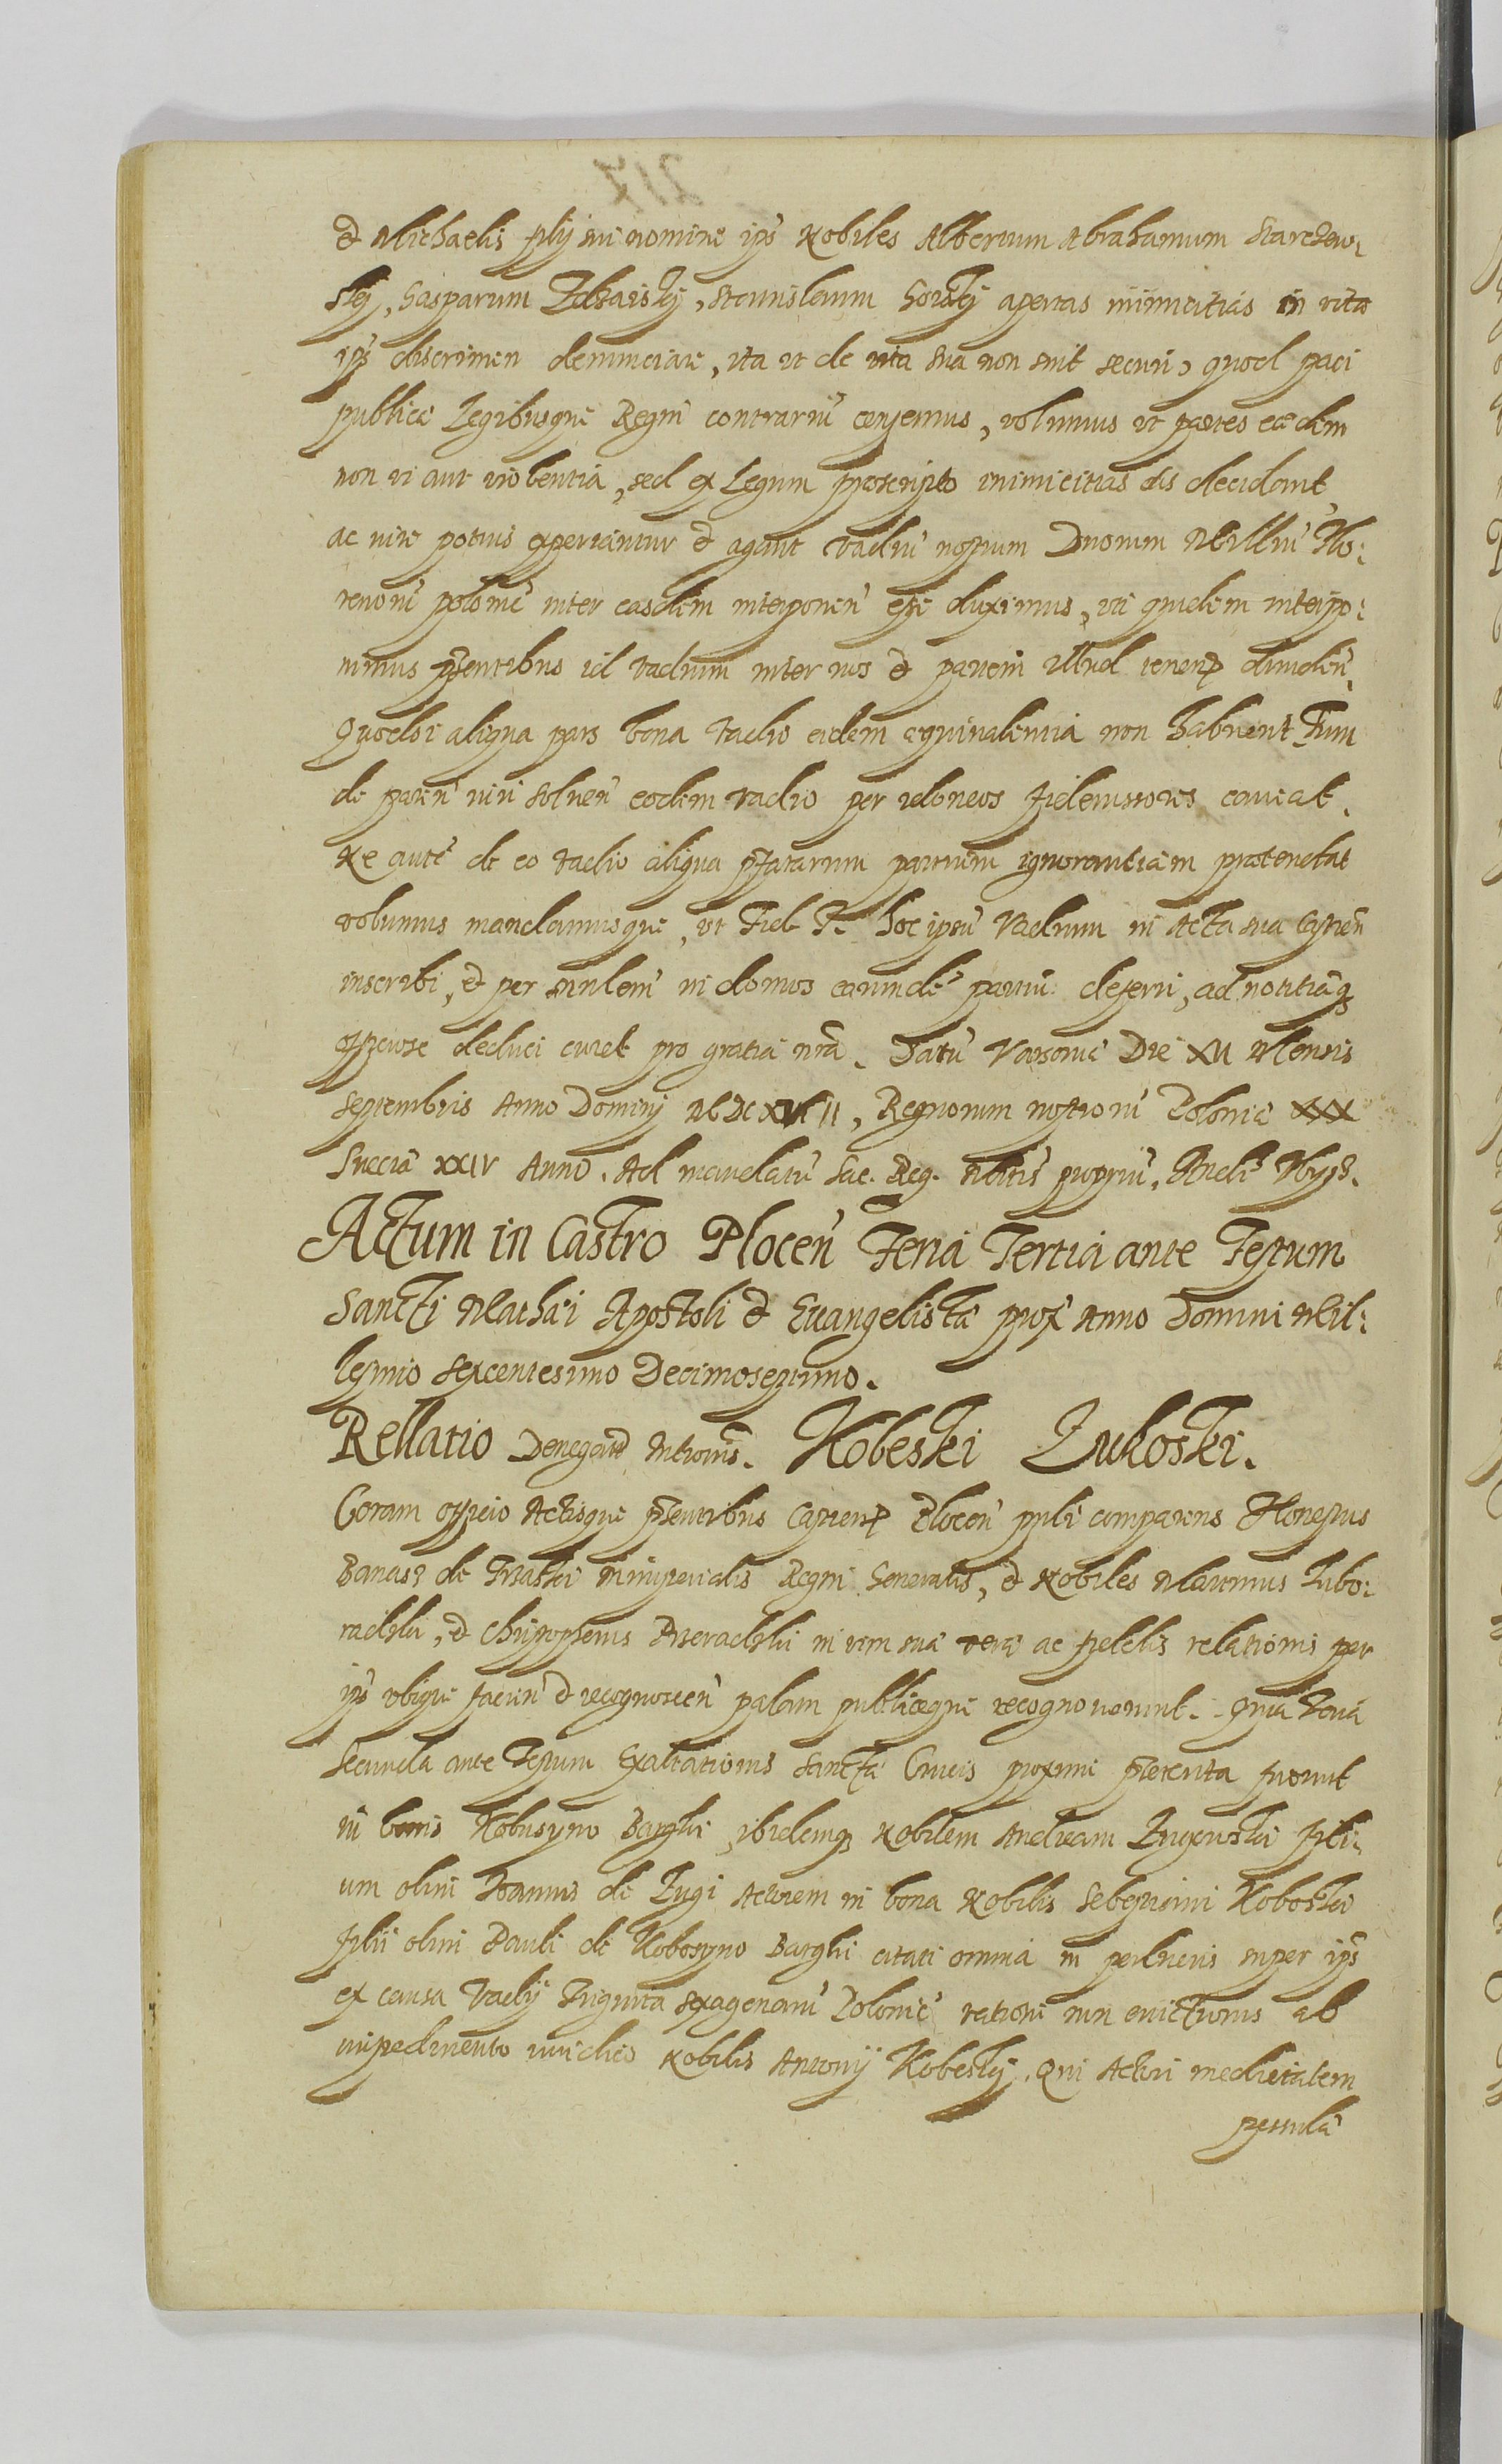 et Michaelis filij sui nomine ip̃s Nobiles Albertum Abrahamum Starczew:
skij, Gasparum Zdzarskij, Stanislaum Gorskij apertas inimicitias in vitæ
ip̃s discrimen denunciare, ita ut de vita sua non sint securi, quod paci
publicæ Legibusque Regni contrariũ censemus, volumus ut partes eædem
non vi aut violentia, sed ex Legum præscripto inimicitias eas decidant
ac iure potius experiantur et agant vadiũ nostrum Duorum Milliũ Flo:
renorũ polonic̃ inter easdem interponen̄ esse duximus, uti quidem interpo:
nimus p̃sentibus id vadium inter nos et partem illud tenen̄ dividen̄.
Quodsi aliqua pars bona vadio eidem æquivalentia non habuerit Tum
de paren̄ iuri solven̄ eodem vadio per idoneos fideiussores caveat.
Ne autẽ de eo vadio aliqua p̃fatarum partium ignorantiam prætendat
volumus mandamusque, ut Fid. T. hoc ipsũ Vadium in Acta sua Castren̄
inscribi, et per in domos earundẽ partiũ deferri, ad notitiãq̨
expresse deduci curet pro gratia nr̃a. Datũ Varsoviæ Die XII Mensis
Septembris Anno Dominj MDCXVII, Regnorum nostrorũ Poloniæ XXX
Sueciæ XXIV Anno. Ad mandatũ Sac. Reg. Mttis propriũ.
Actum in Castro Plocen̄ Feria Tertia ante Festum
Sancti Mathæi Apostoli et Evangelistæ prox̃ Anno Domini Mil:
lesimo Sexcentesimo Decimoseptimo.
Rellatio Denegatæ Intromis̃. Kobeski Lukoski.
Coram officio Actisque p̃sentibus Castren̄ Plocen̄ pp̃li comparens Honestus
Banas de ministerialis Regni Generalis, et Nobiles Martinus Lubo:
radzki, et Christopherus Dzieradzki in vim suæ veræ ac fidelis relationis per
ip̃s ubique facien̄ et recognoscen̄ palam publiceque recognoverunt. Quia Feria
Secunda ante Festum Exaltationis Sanctæ Crucis proxime p̃terita fuerunt
in bonis Kobusyno Barghi, ibidemq̨ Nobilem Andream filii:
um olim Joannis de Lugi Actorem in bona Nobilis Sebestiani Koboski
filii olim Pauli de Kobosyno Barghi citati omnia in perlucris super ip̃s
ex causa Vadij Triginta sexagenarũ Polonic̃ ratione non evictionis ab
impedimento iuridico Nobilis Antonij Kobeskij. Qui Actori medietatem